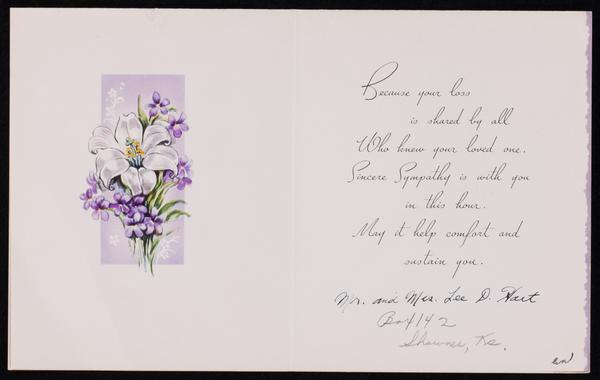 Because your loss
is shared by all
Who knew your loved one.
Sincere Sympathy is with you
in this hour.
May it help comfort and
sustain you.
Mr. and Mrs. Lee D. Hart
Box 142
Shawnee, Ks.